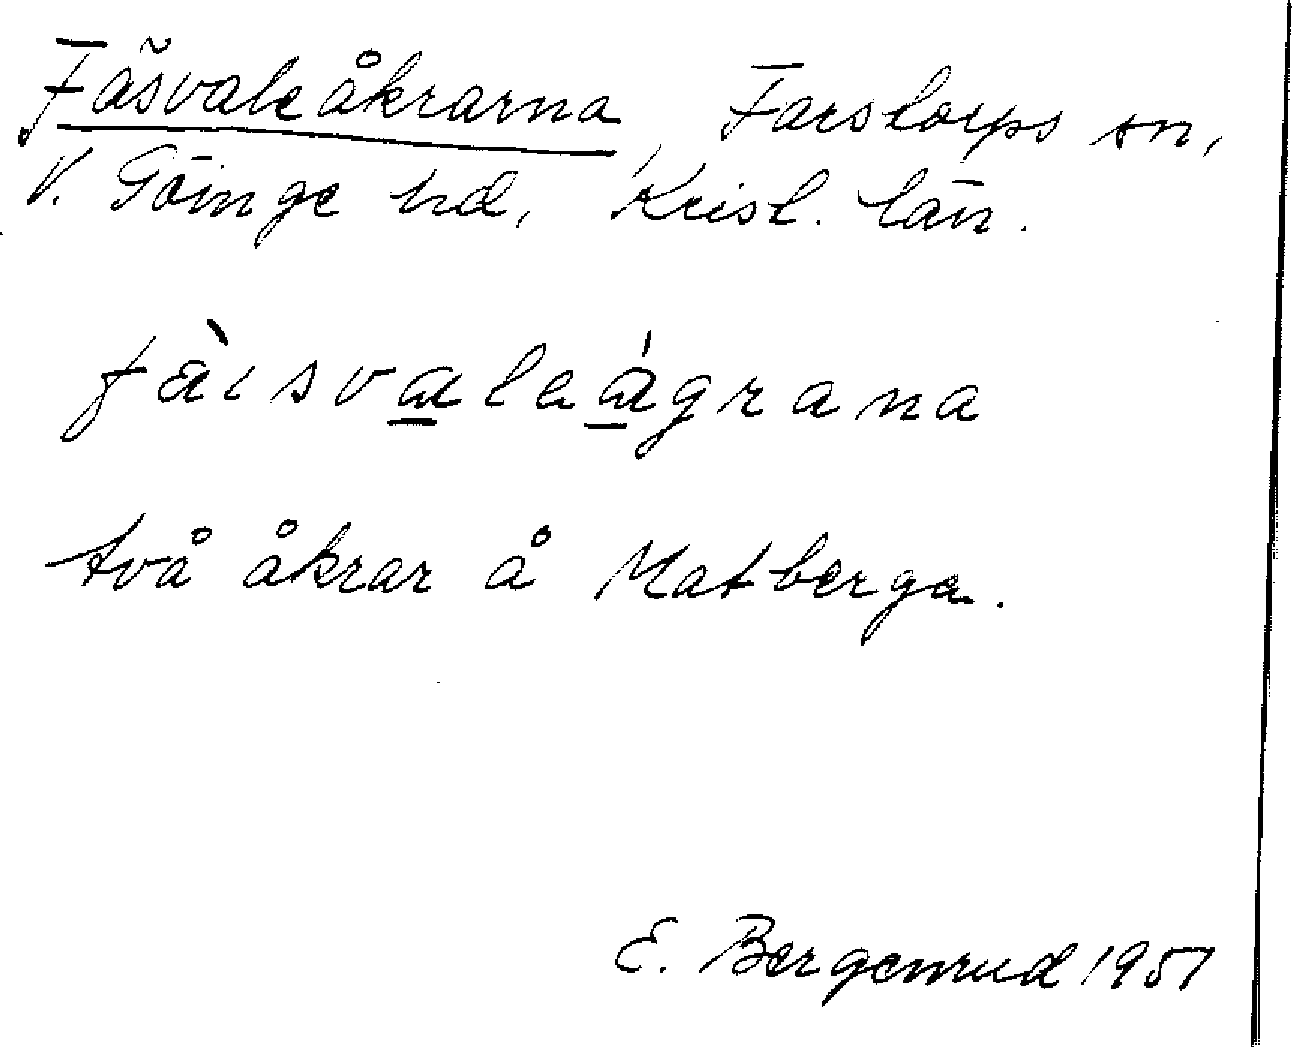 Fäsvaleåkrarna, Farstorps sn,
V. Göinge hd, Krist. län.
fàisvaleágrana
två åkrar å Matberga.
E. Bergenrud 1951